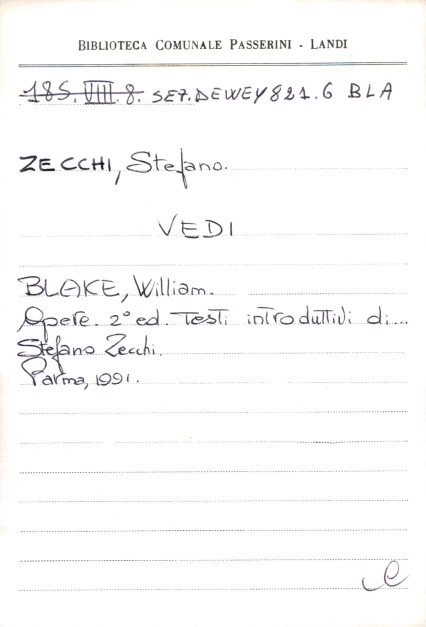 BIBLIOTECA COMUNALE PASSERINI - LANDI
185.VIII.8. SEZ.DEWEY 821.6 BLA
ZECCHI, Stefano.
VEDI
BLAKE, William.
Opere. 2° ed. Testi introduttivi di...
Stefano Zecchi.
Parma, 1991.